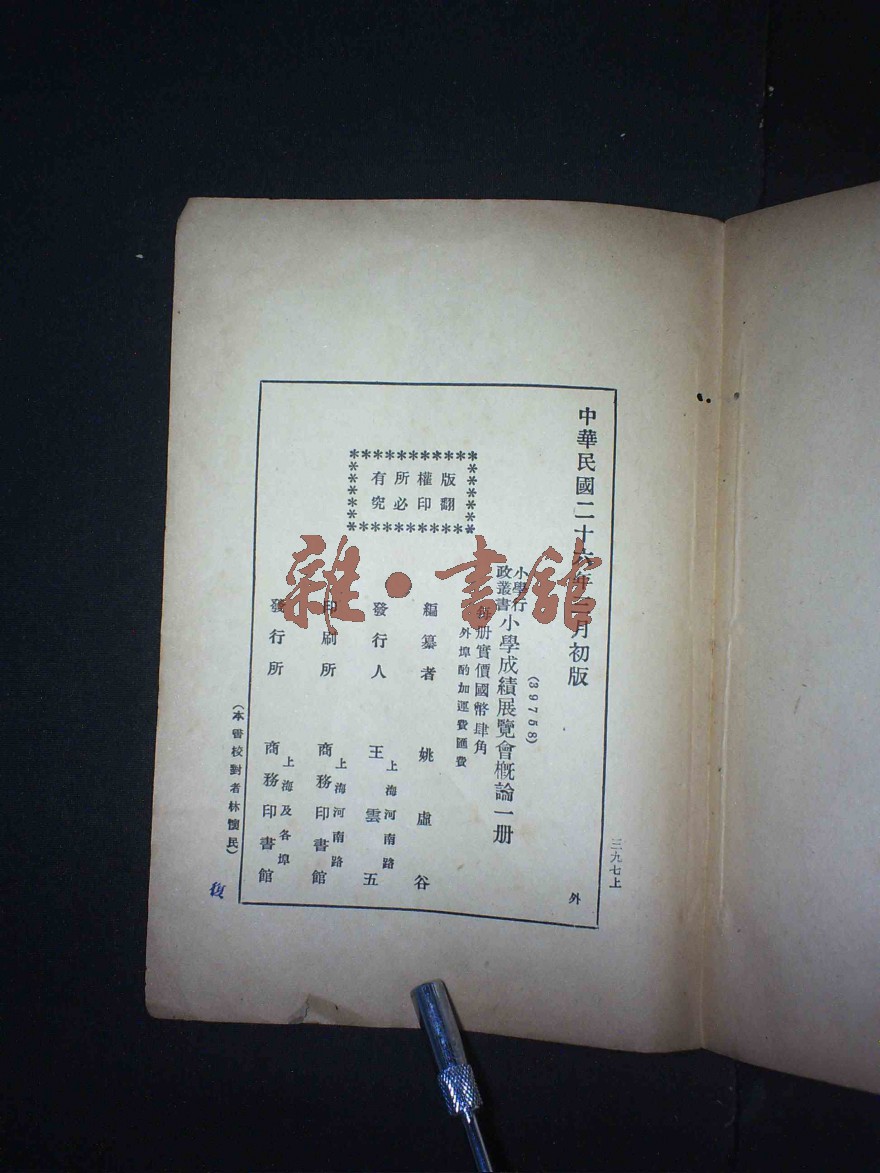 中華民國二十六年二月初版
三九七上
(39758)
小學行政叢書
小學成績展覽會概論一册
外
每册實價國幣肆角
外埠酌加運費匯費
版權所有
翻印必究
編纂者 姚虛谷
發行人 王雲五
上海河南路
印刷所 商務印書館
上海河南路
發行所 商務印書館
上海及各埠
(本書校對者林懷民)
復
雜·書館